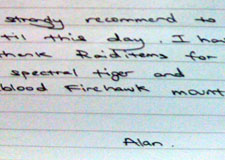 strongly recommend to
til this day. I ha
thank Raiditems for
spectral tiger and
blood Firehawk mount
Alan.